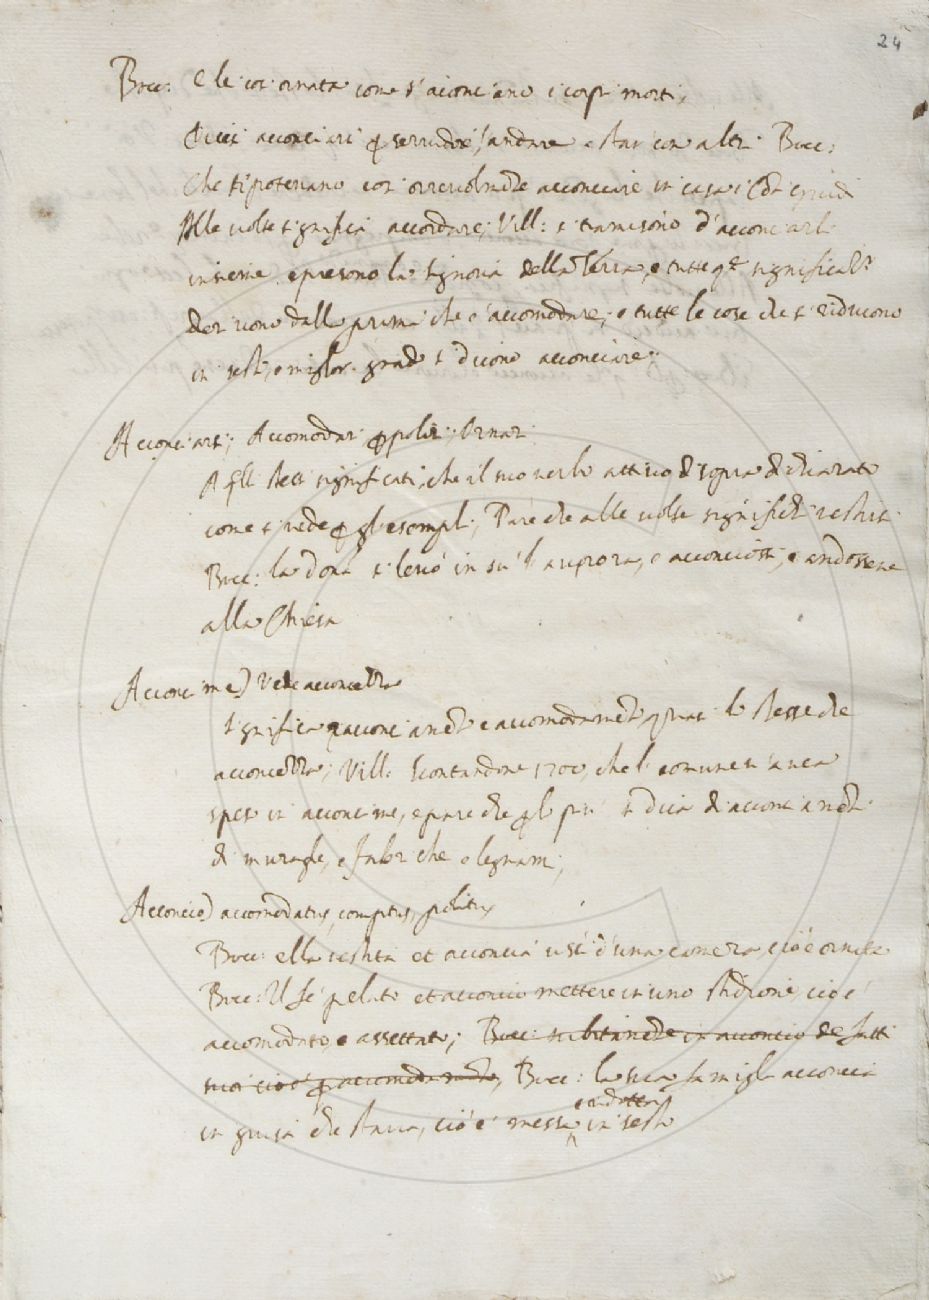 24
Bocc: e le cosi ornata come s'acconciano i corpi morti,
Dicesi acconciarsi p servidore, andare a star con altri. Bocc:
Che si poteriano cosi orrevolmente acconciare in casa i Conti
Alle volte significa accordare; Vill: si tramesono d'acconciarli
insieme e presono la signoria della Terra, e tutte significati
derivono dalla prima che è accomodare, e tutte le cose che si riducono
in sesto, o miglior grado si dicono acconciare.
Acconciarsi; Accomodar polir, Ornar
A significati, che il suo verbo attivo di sopra dichiarato
come si vede p gl'esempli, Pare che alle volte significhi vestirsi
Bocc: la dona si levò in su l'aurora, e acconciossi, e andossene
alla Chiesa
Acconcime) Vede acconcezza
significa acconciamento e accomodamento, quasi lo stesso che
acconcezza; Vill: scontandone 1700, che l comune si avea
speso in acconcime, e pare che p lo più si dica di acconciamenti
di muraglie, o fabriche o legnami,
Acconcio) accomodatus, comptus, politus
Bocc: ella vestita et acconcia uscì d'una camera, cioè ornata
Bocc: Il fè pelato et acconcio mettere in uno stidione, cioè
accomodato, e assettato; Bocc: subitamente in acconcio de fatti
suoi cioè p accomodamento, Bocc: la sua famiglia acconcia
e ridotta
in guisa che stava, cioè messa in sesto